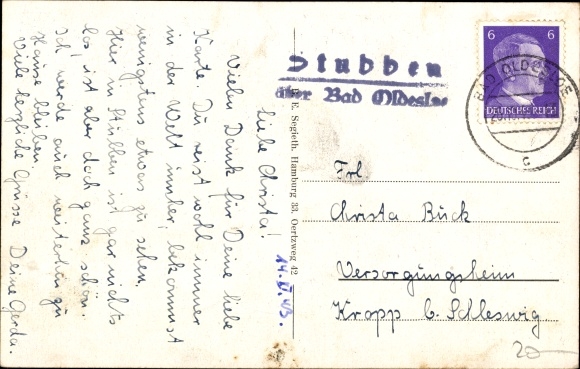 14. II. 43.
Liebe Christa!
Vielen Dank für Deine liebe
Karte. Du reist wohl immer
in der Welt umher, bekommst
wenigstens etwas zu sehen.
Hier in Stubben ist gar nichts
los, ist aber doch ganz schön.
Ich werde auch weiterhin zu
Hause bleiben.
Viele herzliche Grüsse Deine Gerda.
E. Segieth, Hamburg 33, Oertzweg 42
Stubben
über Bad Oldesloe
6 6
DEUTSCHES REICH
BAD OLDESLOE
c
Frl
Christa Buck
Versorgungsheim
Kropp b. Schleswig.
20-